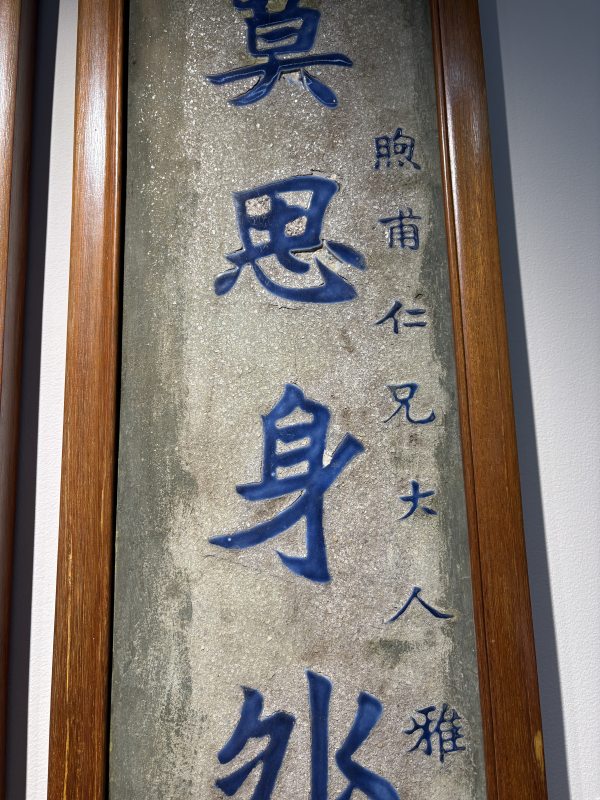 昫甫仁兄大人雅
莫思身外